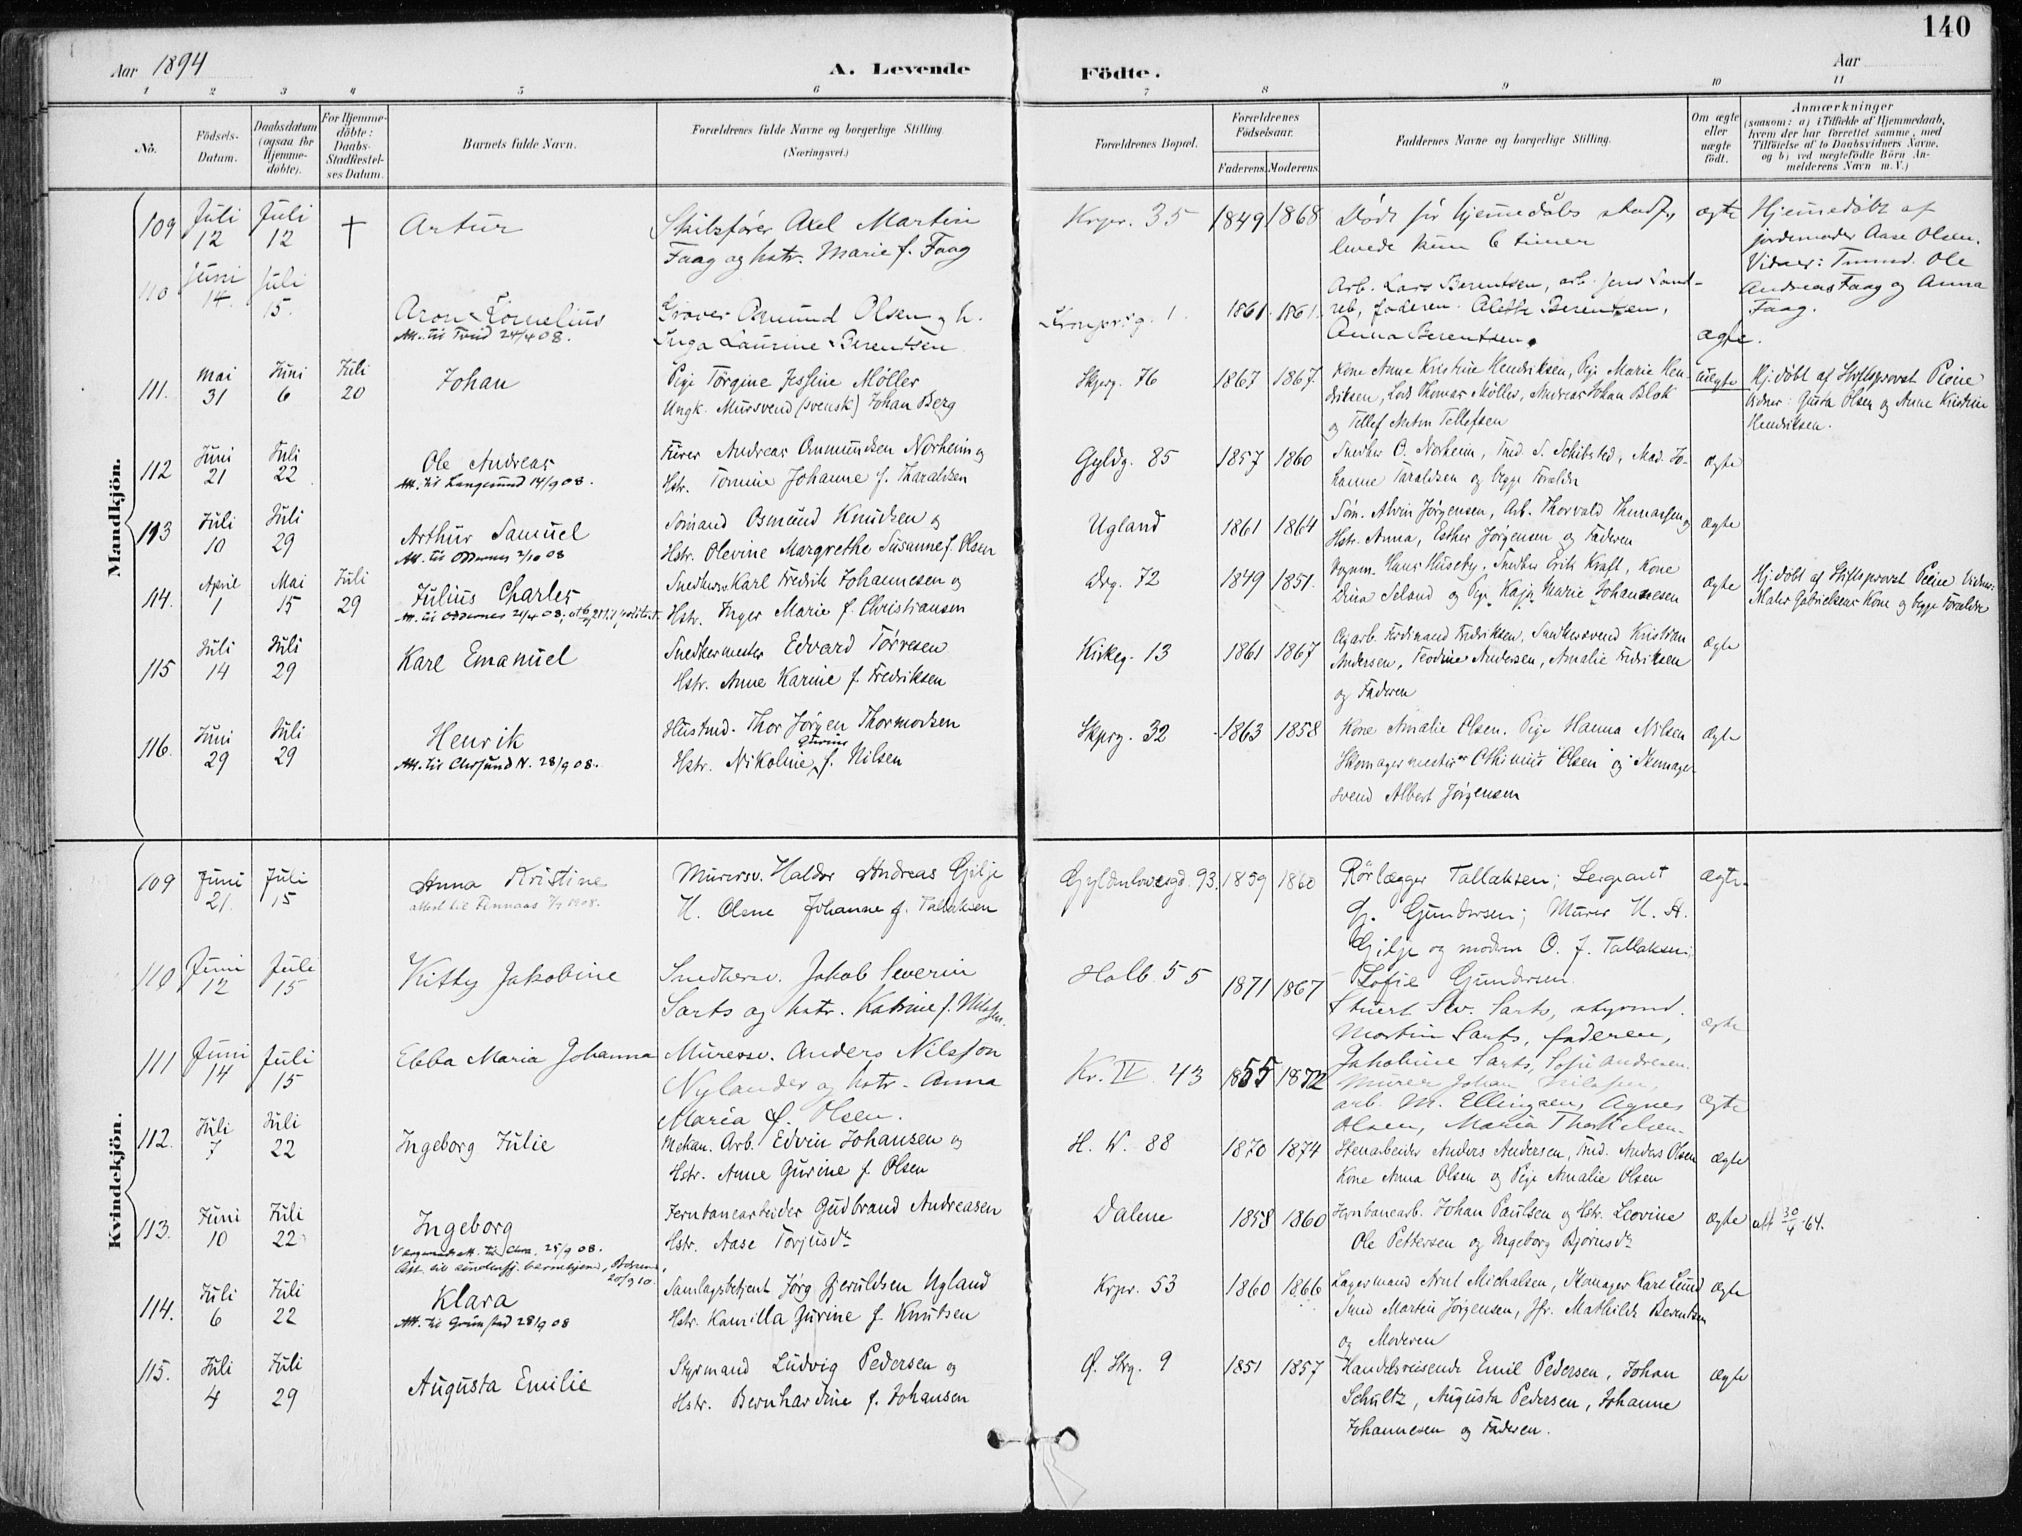 140
Aar 1894
A. Levende Födte.
Aar
1 2 3 4 5 6 7 8 9 10 11
No.
Födsels-Datum.
Daabsdatum (ogsaa for Hjemme-döbte).
For Hjemme-döbte: Daabs-Stadfæstel-ses Datum.
Barnets fulde Navn.
Forældrenes fulde Navne og borgerlige Stilling (Næringsvei.)
Forældrenes Bopæl.
Forældrenes Födselsaar.
Faderens. Moderens.
Faddernes Navne og borgerlige Stilling.
Om ægte eller uægte födt.
Anmærkninger
(saasom: a) i Tilfælde af Hjemmedaab,
hvem der har forrettet samme, med
Tilföielse af to Daabsvidners Navne,
og b) ved uægtefödte Börn An-
melderens Navn m. V.)
Mandkjön.
109 Juli 12 Juli 12 † Artur
Skibsfører Axel Martin
Faag og hstr. Marie f. Faag
Krpr. 35 1849 1868
Døde før hjemmedåbs stadf,
levede kun 6 timer
ægte
Hjemmedöbt af
jordemoder Aase Olsen.
Vidner: Tmmd. Ole
Andreas Faag og Anna
Faag.
110 Juni 14. Juli 15. Aron Kornelius
Att. til Tveid 24/4 08.
Graver Asmund Olsen og h.
Inga Laurine Berentsen
Kronprig. 1. 1861 1861.
Arb. Lars Berentsen, arb. Jens Sand-
reb, faderen. Alette Berentsen,
Anna Berentsen.
ægte.
111. Mai 31 Juni 6 Juli 20 Johan
Pige Törgine Jessine Møller
Ungk. Mursvend (svensk) Johan Berg
Skperg. 76 1867 1867.
Kone Anne Kristine Hendriksen, Pige Marie Hen-
driksen, Lods Thomas Møller, Andreas Johan Blok
og Tellef Anton Tellefsen
Uægte
Hj. döbt af Stiftsprovst Peine
Vidner: Gusta Olsen og Anne Kristine
Hendriksen.
112 Juni 21 Juli 22 Ole Andreas
Att. til Langesund 14/9 08.
Furer Andreas Asmundsen Norheim og
Hstr. Tomine Johanne f. Tharaldsen
Gyldg. 85 1857 1860
Snedker O. Norheim, Tmd. S. Schibsted, Mad. Jo-
hanne Taraldsen og begge Forældre
ægte
113 Juli 10 Juli 29 Arthur Samuel
Att. til Oddernes 2/10 08
Sömand Osmund Knudsen og
Hstr. Olevine Margrethe Susanne f. Olsen
Ugland 1861 1864
Söm. Alvin Jörgensen, Arb. Thorvald Thomassen og
Hstr. Anna, Esther Jörgensen og Faderen
ægte
114. April 1 Mai 15 Juli 29 Julius Charles
Snedkersv. Karl Fredrik Johannesen og
Hstr. Inger Marie f. Christiansen
Drg. 72 1849 1851.
Hans Huseby, Snedker Erik Kraft, Kone
Dina Seland og Pige Kaja Marie Johannesen
ægte
Hj. döbt af Stiftsprovst Peine Vidner:
Maler Gabrielsens Kone og begge Forældre
115 Juli 14 Juli 29 Karl Emanuel
Snedkermester Edvard Törresen
Hstr. Anne Karine f. Fredriksen
Kirkeg. 13 1861 1867
Cigarb. Ferdinand Fredriksen, Snedkersvend Kristian
Andersen, Teodine Andersen, Amalie Fredriksen
og Faderen
ægte
116. Juni 29 Juli 29 Henrik
Att. til Chrsund N. 28/9 08.
Hustmd. Thor Jörgen Thormodsen
Hstr. Nikoline Gurine f. Nilsen
Skprg. 32 1863 1858
Kone Amalie Olsen. Pige Hanna Nilsen
Skomagermester Othinius Olsen og Skomager-
svend Albert Jörgensen
ægte
Kvindekjön.
109 Juni 21. Juli 15 Anna Kristine
attest til Finnaas 7/9 1908.
Murersv. Haldor Andreas Gilje
H. Olene Johanne f. Tallaksen
Gyldenlövesgd. 93. 1859 1860
Rörlægger Tallaksen; Sergeant
Gj. Gundersen; Murer H. A.
Gilje og modern O. J. Tallaksen;
Sofie Gundersen.
ægte.
110 Juni 12 Juli 15 Kitty Jakobine
Snedkersv. Jakob Severin
Sarts og hstr. Katrine f. Nilssen.
Holb. 55 1871 1867
Stuert Sev. Sarts, styrmd.
Martin Sarts, faderen,
Jakobine Sarts, Sofie Andresen.
ægte
111 Juni 14 Juli 15 Ebba Maria Johanna
Murersv. Anders Nilsson
Nylander og hstr. Anna
Maria f. Olsen.
Kr. IV. 43 1855 1872
Murer Johan Nilssen,
arb. M. Ellingsen, Agnes
Olsen, Maria Thorkelsen.
ægte
112. Juli 7 Juli 22 Ingeborg Julie
Mekan. Arb. Edvin Johansen og
Hstr. Anne Gurine f. Olsen
H. W. 88 1870 1874
Stenarbeider Anders Andersen, Tmd. Anders Olsen
Kone Anna Olsen og Pige Amalie Olsen
ægte
113. Juni 10 Juli 22 Ingeborg
Jernbanearbeider Gudbrand Andreasen
Hstr. Aase Torjusdr
Dalene 1858 1860
Jernbanearb. Johan Paulsen og Hstr. Leovine
Ole Pettersen og Ingeborg Bjornsdr
ægte
att 30/4 -64.
114. Juli 6 Juli 22 Klara
Att. til Grimstad 28/9 08
Samlagsbetjent Jörg Gjeruldsen Ugland
Hstr. Kamilla Gurine f. Knutsen
Krpr. 53 1860 1866
Lagermand Arnt Michalsen, Skomager Karl Lund
Smed Martin Jörgensen, Jfr. Mathilde Berentsen
og Moderen
ægte
115. Juli 4 Juli 29 Augusta Emilie
Styrmand Ludvig Pedersen og
Hstr. Bernhardine f. Johansen
Ø. Strg. 9 1851 1857
Handelsreisende Emil Pedersen, Johan
Schultz, Augusta Pedersen, Johanne
Johannesen og Faderen.
ægte